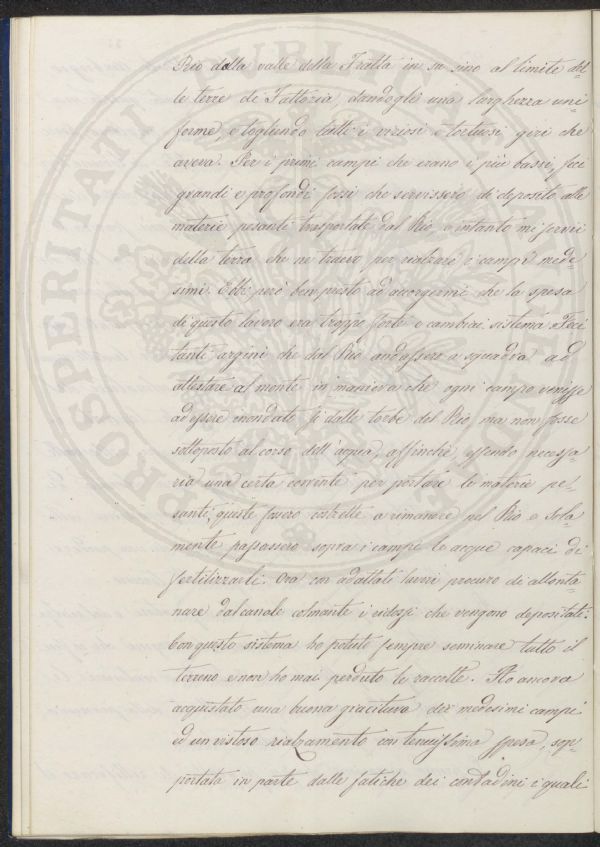 Rio dalla valle della Fratta in su sino al limite del-
le terre di Fattoria, dandogli una larghezza uni-
forme, e togliendo tutti i viziosi e tortuosi giri che
aveva. Per i primi campi che erano i più bassi, feci
grandi e profondi fossi che servissero di deposito alle
materie pesanti trasportate dal Rio, e intanto mi servii
della terra che ne traevo per rialzare i campi mede-
simi. Ebbi però ben presto ad accorgermi che la spesa
di questo lavoro era troppo forte e cambiai sistema. Feci
tanti argini che dal Rio andassero a squadra ad
attestare al monte in maniera che ogni campo venisse
ad essere inondato sì dalle torbe del Rio, ma non fosse
sottoposto al corso dell'acqua, affinchè, essendo necessa-
ria una certa corrente per portare le materie pe-
santi, queste fussero costrette a rimanere nel Rio e sola-
mente passassero sopra i campi le acque capaci di
fertilizzarli. Ora con adattati lavori procuro di allonta-
nare dal canale colmante i ridossi che vengono depositati.
Con questo sistema ho potuto sempre seminare tutto il
terreno e non ho mai perduto le raccolte. Ho ancora
acquistato una buona giacitura dei medesimi campi
ed un vistoso rialzamento con tenuissima spesa, sop-
portata in parte dalle fatiche dei contadini i quali
PROSPERITATI PUBLICAE